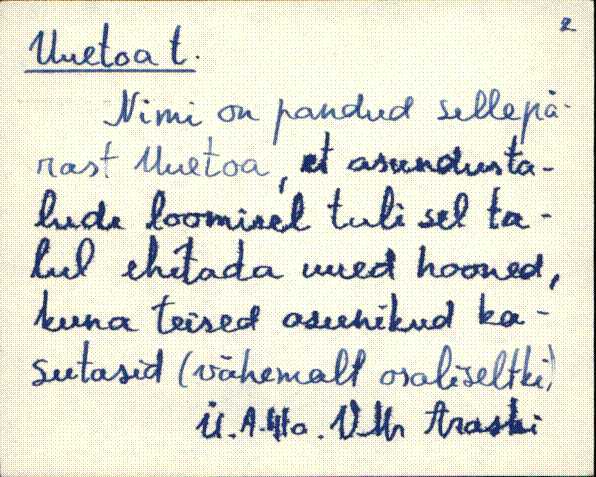 2
Uuetoa t.
Nimi on pandud sellepä-
rast Uuetoa, et asundusta-
lude loomisel tuli sel ta-
lul ehitada uued hooned,
kuna teised asunikud ka-
sutasid (vähemalt osaliseltki)